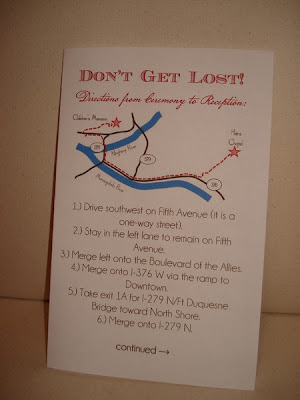 DON'T GET LOST!
Directions from Ceremony to Reception:
Children's Museum
Heinz
Chapel
279
Allegheny River
579
Monongahela River
376
1.) Drive southwest on Fifth Avenue (it is a
one-way street).
2.) Stay in the left lane to remain on Fifth
Avenue.
3.) Merge left onto the Boulevard of the Allies.
4.) Merge onto I-376 W via the ramp to
Downtown.
5.) Take exit 1A for I-279 N/Ft Duquesne
Bridge toward North Shore.
6.) Merge onto I-279 N.
continued →